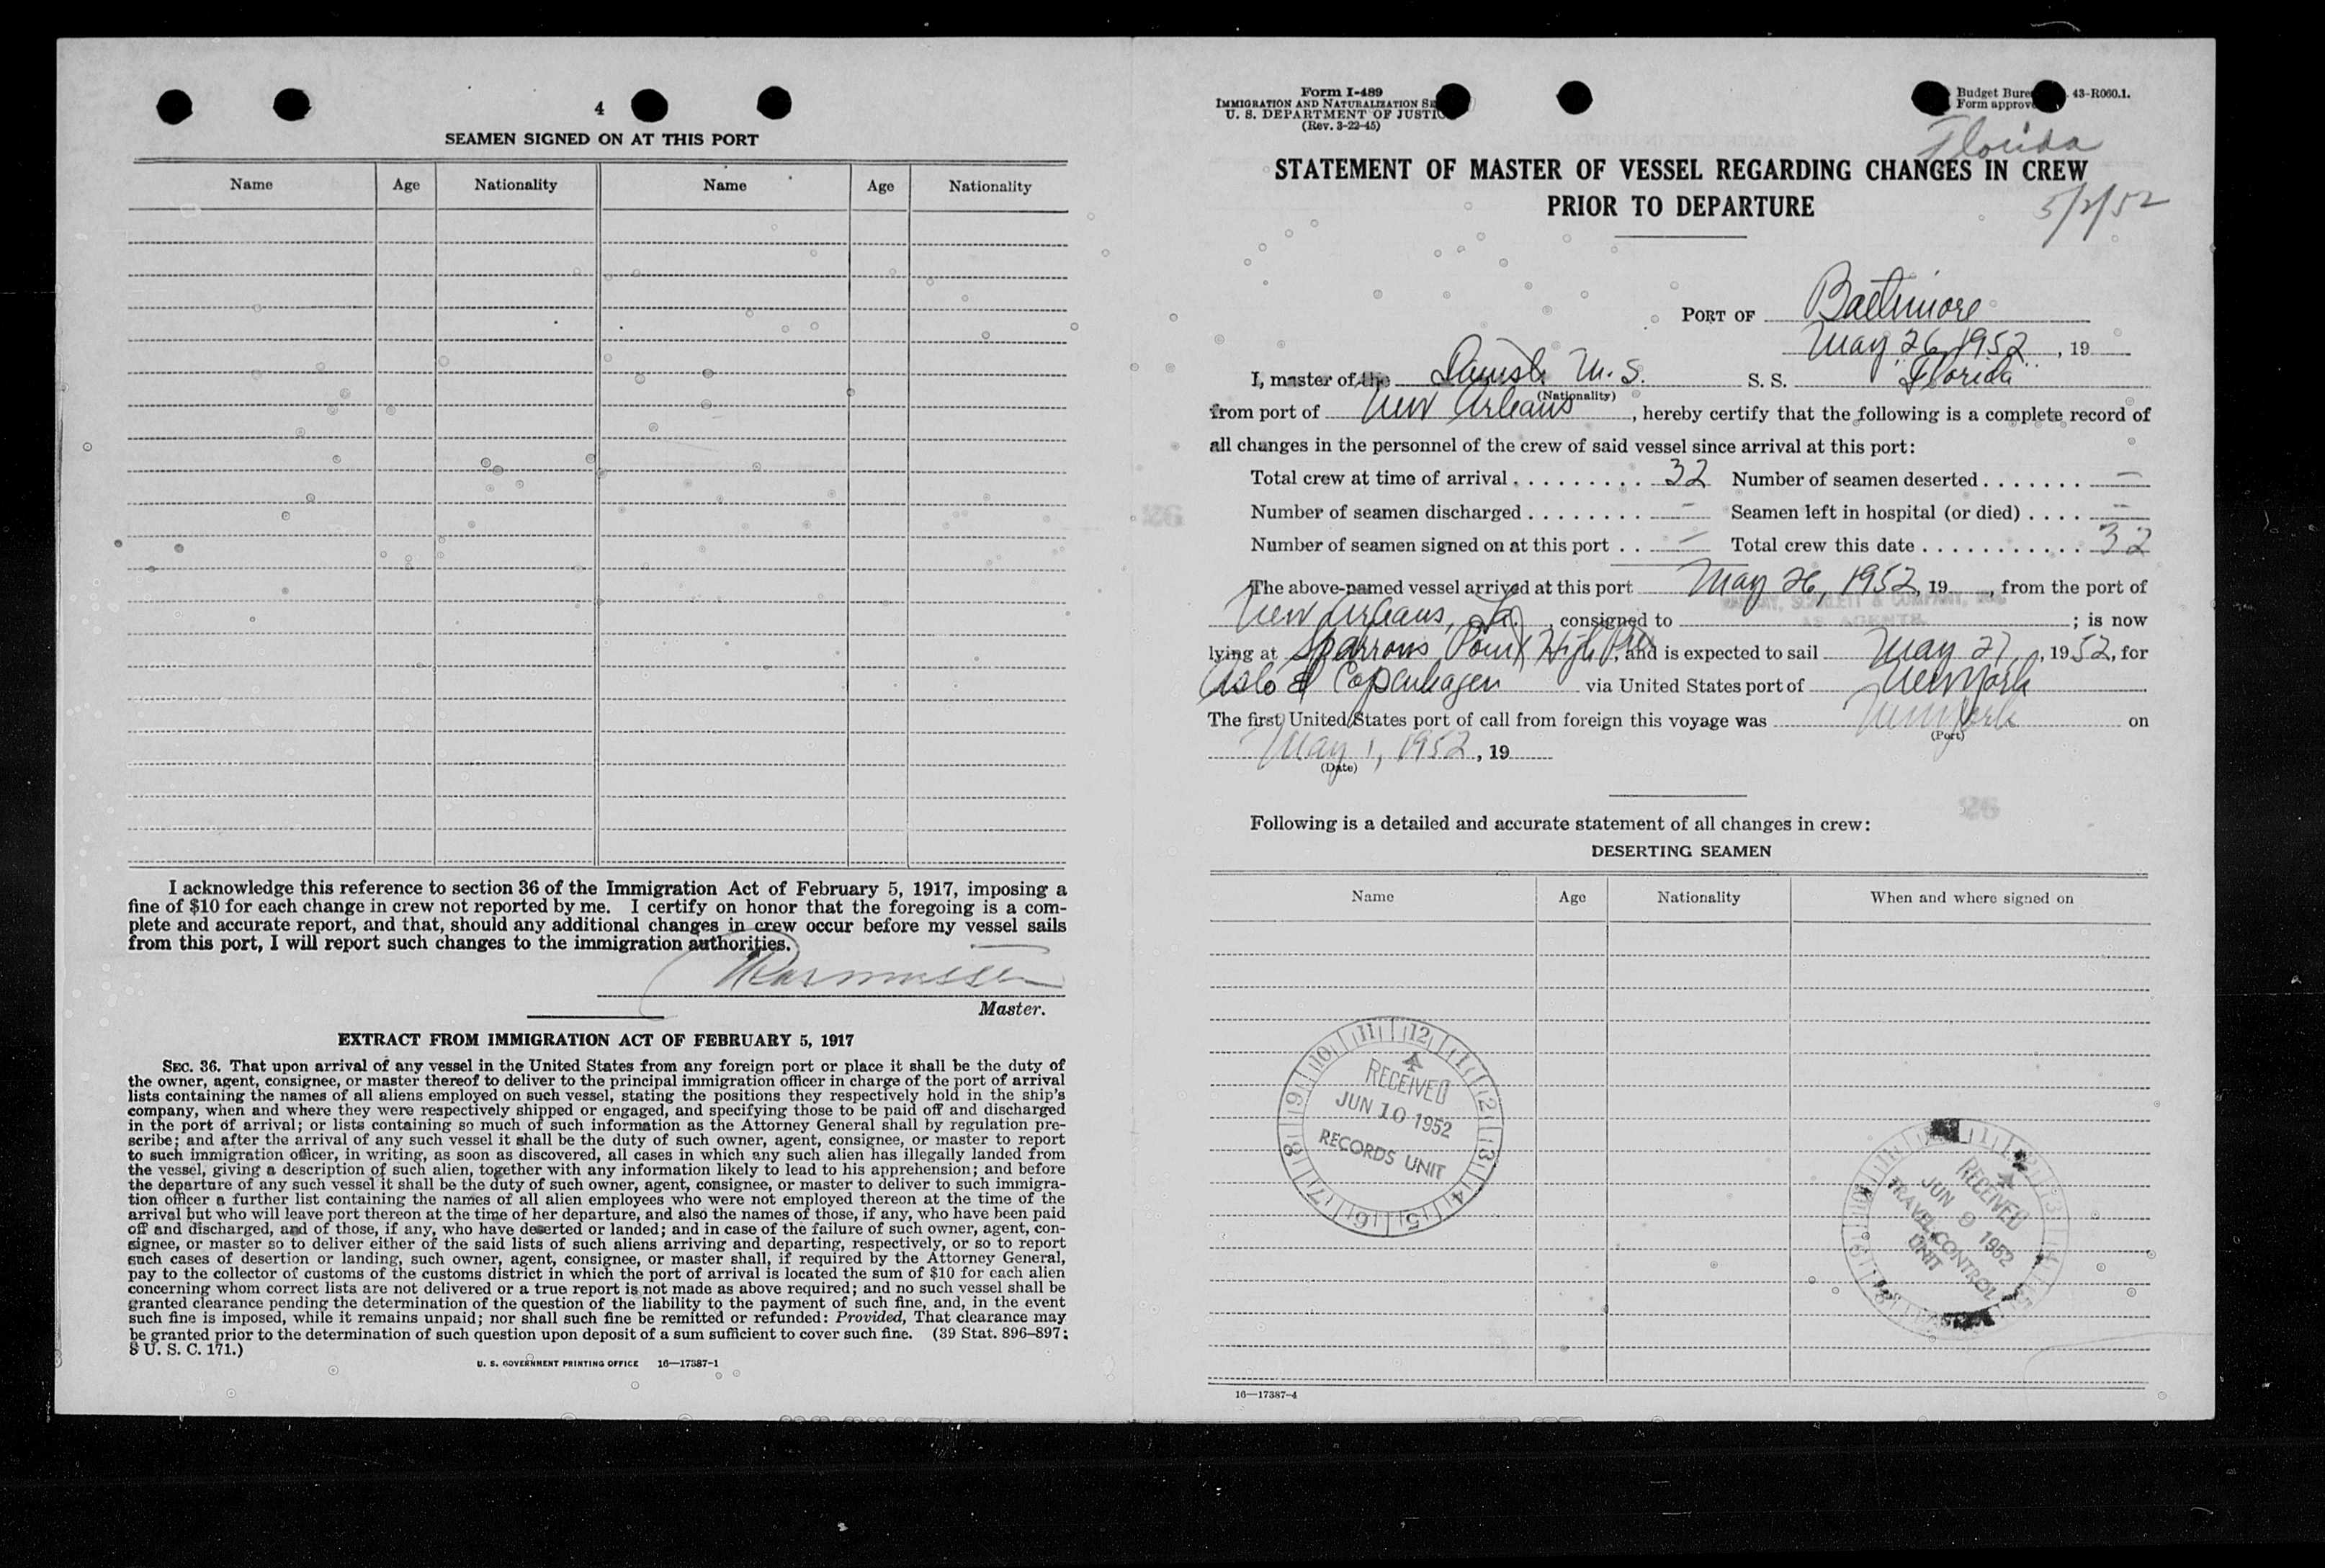 4
SEAMEN SIGNED ON AT THIS PORT
Name Age Nationality Name Age Nationality
I acknowledge this reference to section 36 of the Immigration Act of February 5, 1917, imposing a
fine of $10 for each change in crew not reported by me. I certify on honor that the foregoing is a com-
plete and accurate report, and that, should any additional changes in crew occur before my vessel sails
from this port, I will report such changes to the immigration authorities.
Rasmussen
Master.
EXTRACT FROM IMMIGRATION ACT OF FEBRUARY 5, 1917
SEC. 36. That upon arrival of any vessel in the United States from any foreign port or place it shall be the duty of
the owner, agent, consignee, or master thereof to deliver to the principal immigration officer in charge of the port of arrival
lists containing the names of all aliens employed on such vessel, stating the positions they respectively hold in the ship's
company, when and where they were respectively shipped or engaged, and specifying those to be paid off and discharged
in the port of arrival; or lists containing so much of such information as the Attorney General shall by regulation pre-
scribe; and after the arrival of any such vessel it shall be the duty of such owner, agent, consignee, or master to report
to such immigration officer, in writing, as soon as discovered, all cases in which any such alien has illegally landed from
the vessel, giving a description of such alien, together with any information likely to lead to his apprehension; and before
the departure of any such vessel it shall be the duty of such owner, agent, consignee, or master to deliver to such immigra-
tion officer a further list containing the names of all alien employees who were not employed thereon at the time of the
arrival but who will leave port thereon at the time of her departure, and also the names of those, if any, who have been paid
off and discharged, and of those, if any, who have deserted or landed; and in case of the failure of such owner, agent, con-
signee, or master so to deliver either of the said lists of such aliens arriving and departing, respectively, or so to report
such cases of desertion or landing, such owner, agent, consignee, or master shall, if required by the Attorney General,
pay to the collector of customs of the customs district in which the port of arrival is located the sum of $10 for each alien
concerning whom correct lists are not delivered or a true report is not made as above required; and no such vessel shall be
granted clearance pending the determination of the question of the liability to the payment of such fine, and, in the event
such fine is imposed, while it remains unpaid; nor shall such fine be remitted or refunded: Provided, That clearance may
be granted prior to the determination of such question upon deposit of a sum sufficient to cover such fine. (39 Stat. 896–897;
8 U. S. C. 171.)
U. S. GOVERNMENT PRINTING OFFICE 16—17387-1
Form I-489
IMMIGRATION AND NATURALIZATION SE
U. S. DEPARTMENT OF JUSTIC
(Rev. 3-22-45)
Budget Bure 43-R060.1.
Form approve
Florida
STATEMENT OF MASTER OF VESSEL REGARDING CHANGES IN CREW
PRIOR TO DEPARTURE
5/2/52
PORT OF Baltimore
May 26 1952, 19
I, master of the Danish M. S. S. S. Florida
(Nationality)
from port of New Orleans, hereby certify that the following is a complete record of
all changes in the personnel of the crew of said vessel since arrival at this port:
Total crew at time of arrival ......... 32 Number of seamen deserted ....... —
Number of seamen discharged ........ — Seamen left in hospital (or died) .... —
Number of seamen signed on at this port .. — Total crew this date ............ 32
The above-named vessel arrived at this port May 26, 1952, 19, from the port of
New Orleans, La., consigned to SCARLETT & COMPANY, AS AGENTS; is now
lying at Sparrows Point High Pier, and is expected to sail May 27, 1952, for
Oslo & Copenhagen via United States port of New York
The first United States port of call from foreign this voyage was New York on
(Port)
May 1, 1952, 19
(Date)
Following is a detailed and accurate statement of all changes in crew:
DESERTING SEAMEN
Name Age Nationality When and where signed on
11 12 1 2 3 4 5 6 7 8 9 10
RECEIVED
JUN 10 1952
RECORDS UNIT
RECEIVED
JUN 9 1952
TRAVEL CONTROL
UNIT
16—17387-4